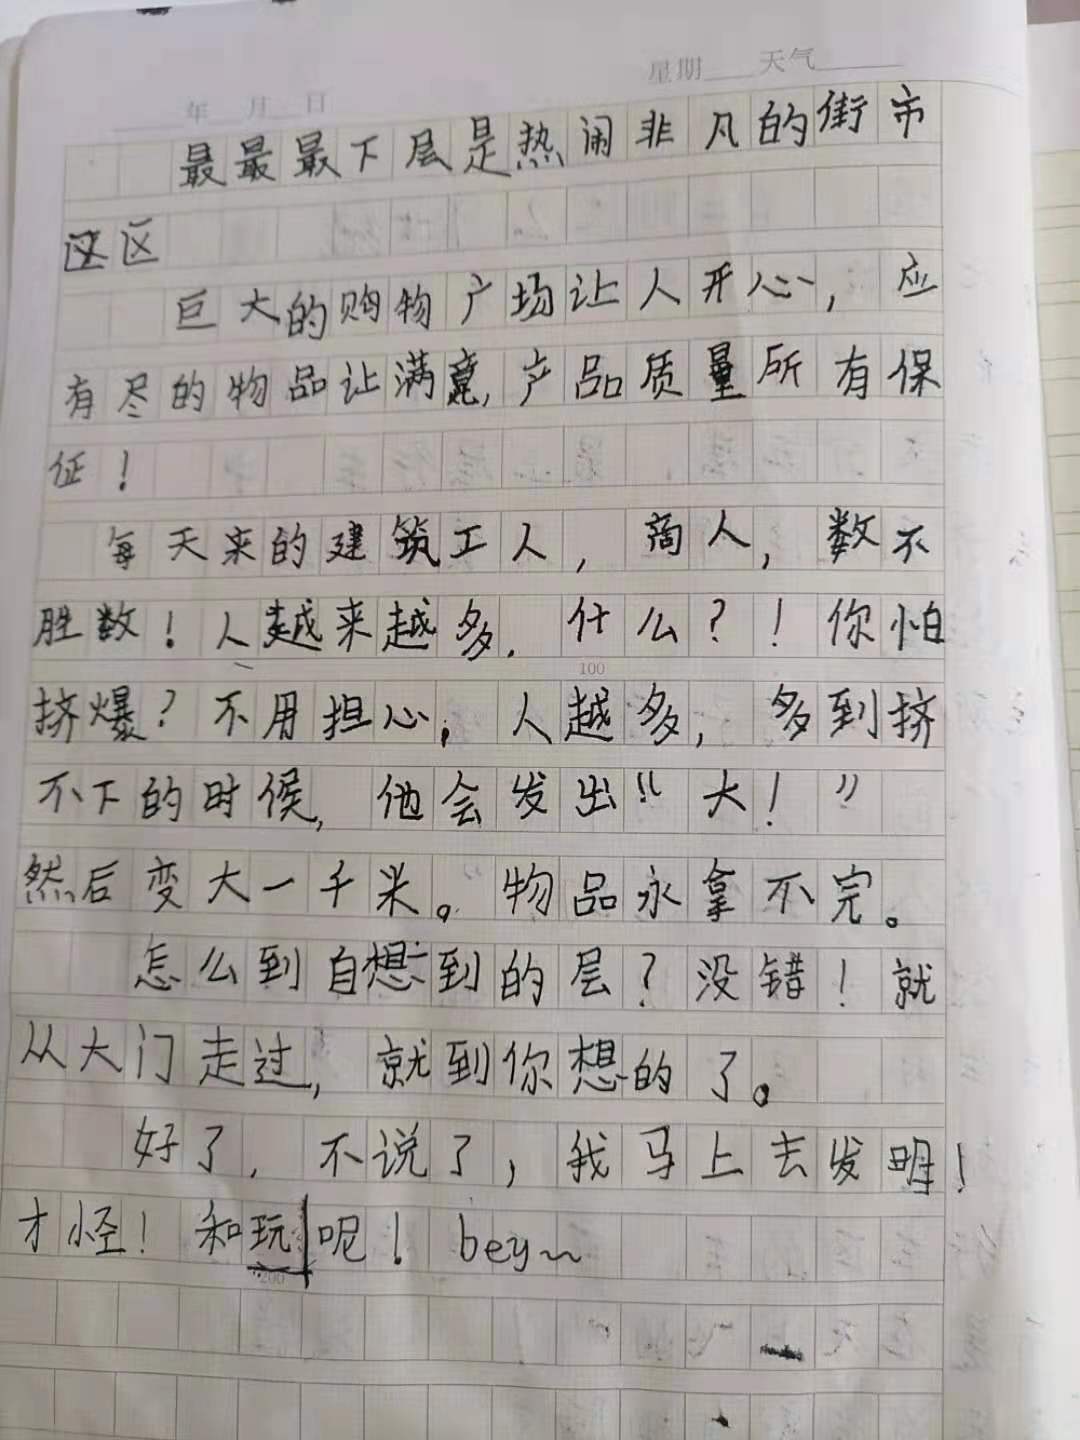 星期 天气
年 月 日
最最最下层是热闹非凡的街市
区
巨大的购物广场让人开心,应
有尽的物品让满意,产品质量所有保
证!
每天来的建筑工人,商人,数不
胜数!人越来越多.什么?!你怕
100
挤爆?不用担心,人越多,多到挤
不下的时候,他会发出“大!”
然后变大一千米。物品永拿不完。
怎么到自想到的层?没错!就
从大门走过,就到你想的了。
好了,不说了,我马上去发明!
才怪!和玩呢!bey~
200